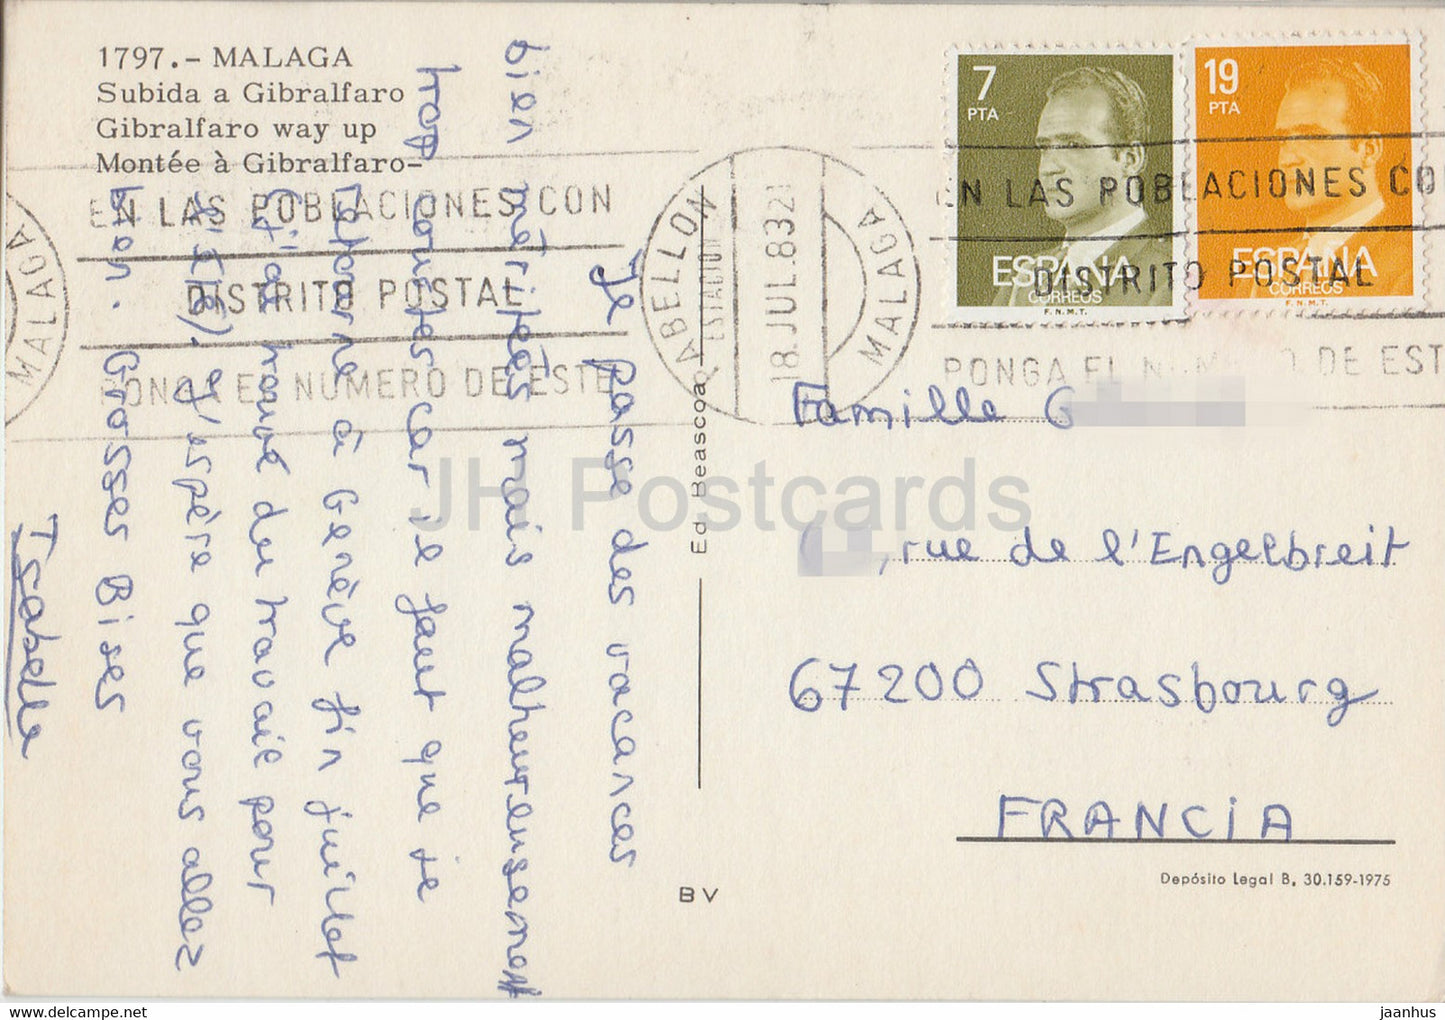 1797.- MALAGA
Subida a Gibralfaro
Gibralfaro way up
Montée à Gibralfaro-
EN LAS POBLACIONES CON
DISTRITO POSTAL
PONGA EL NUMERO DE ESTE
MALAGA
Je passe des vacances
bien méritées mais malheureusement
trop courtes car il faut que je
retourne à Genève fin juillet
(j'ai trouvé du travail pour
). J'espère que vous allez
bien. Grosses Bises
Isabelle
ABELLON
ESTACION
18.JUL.83
MALAGA
7
PTA
ESPAÑA
CORREOS
F.N.M.T.
19
PTA
ESPAÑA
CORREOS
F.N.M.T.
EN LAS POBLACIONES CO
DISTRITO POSTAL
PONGA EL NUMERO DE EST
Ed. Beascoa
BV
Famille G
, rue de l'Engelbreit
67200 Strasbourg
FRANCIA
Depósito Legal B. 30.159-1975
JH Postcards
www.delcampe.net
jaanhus